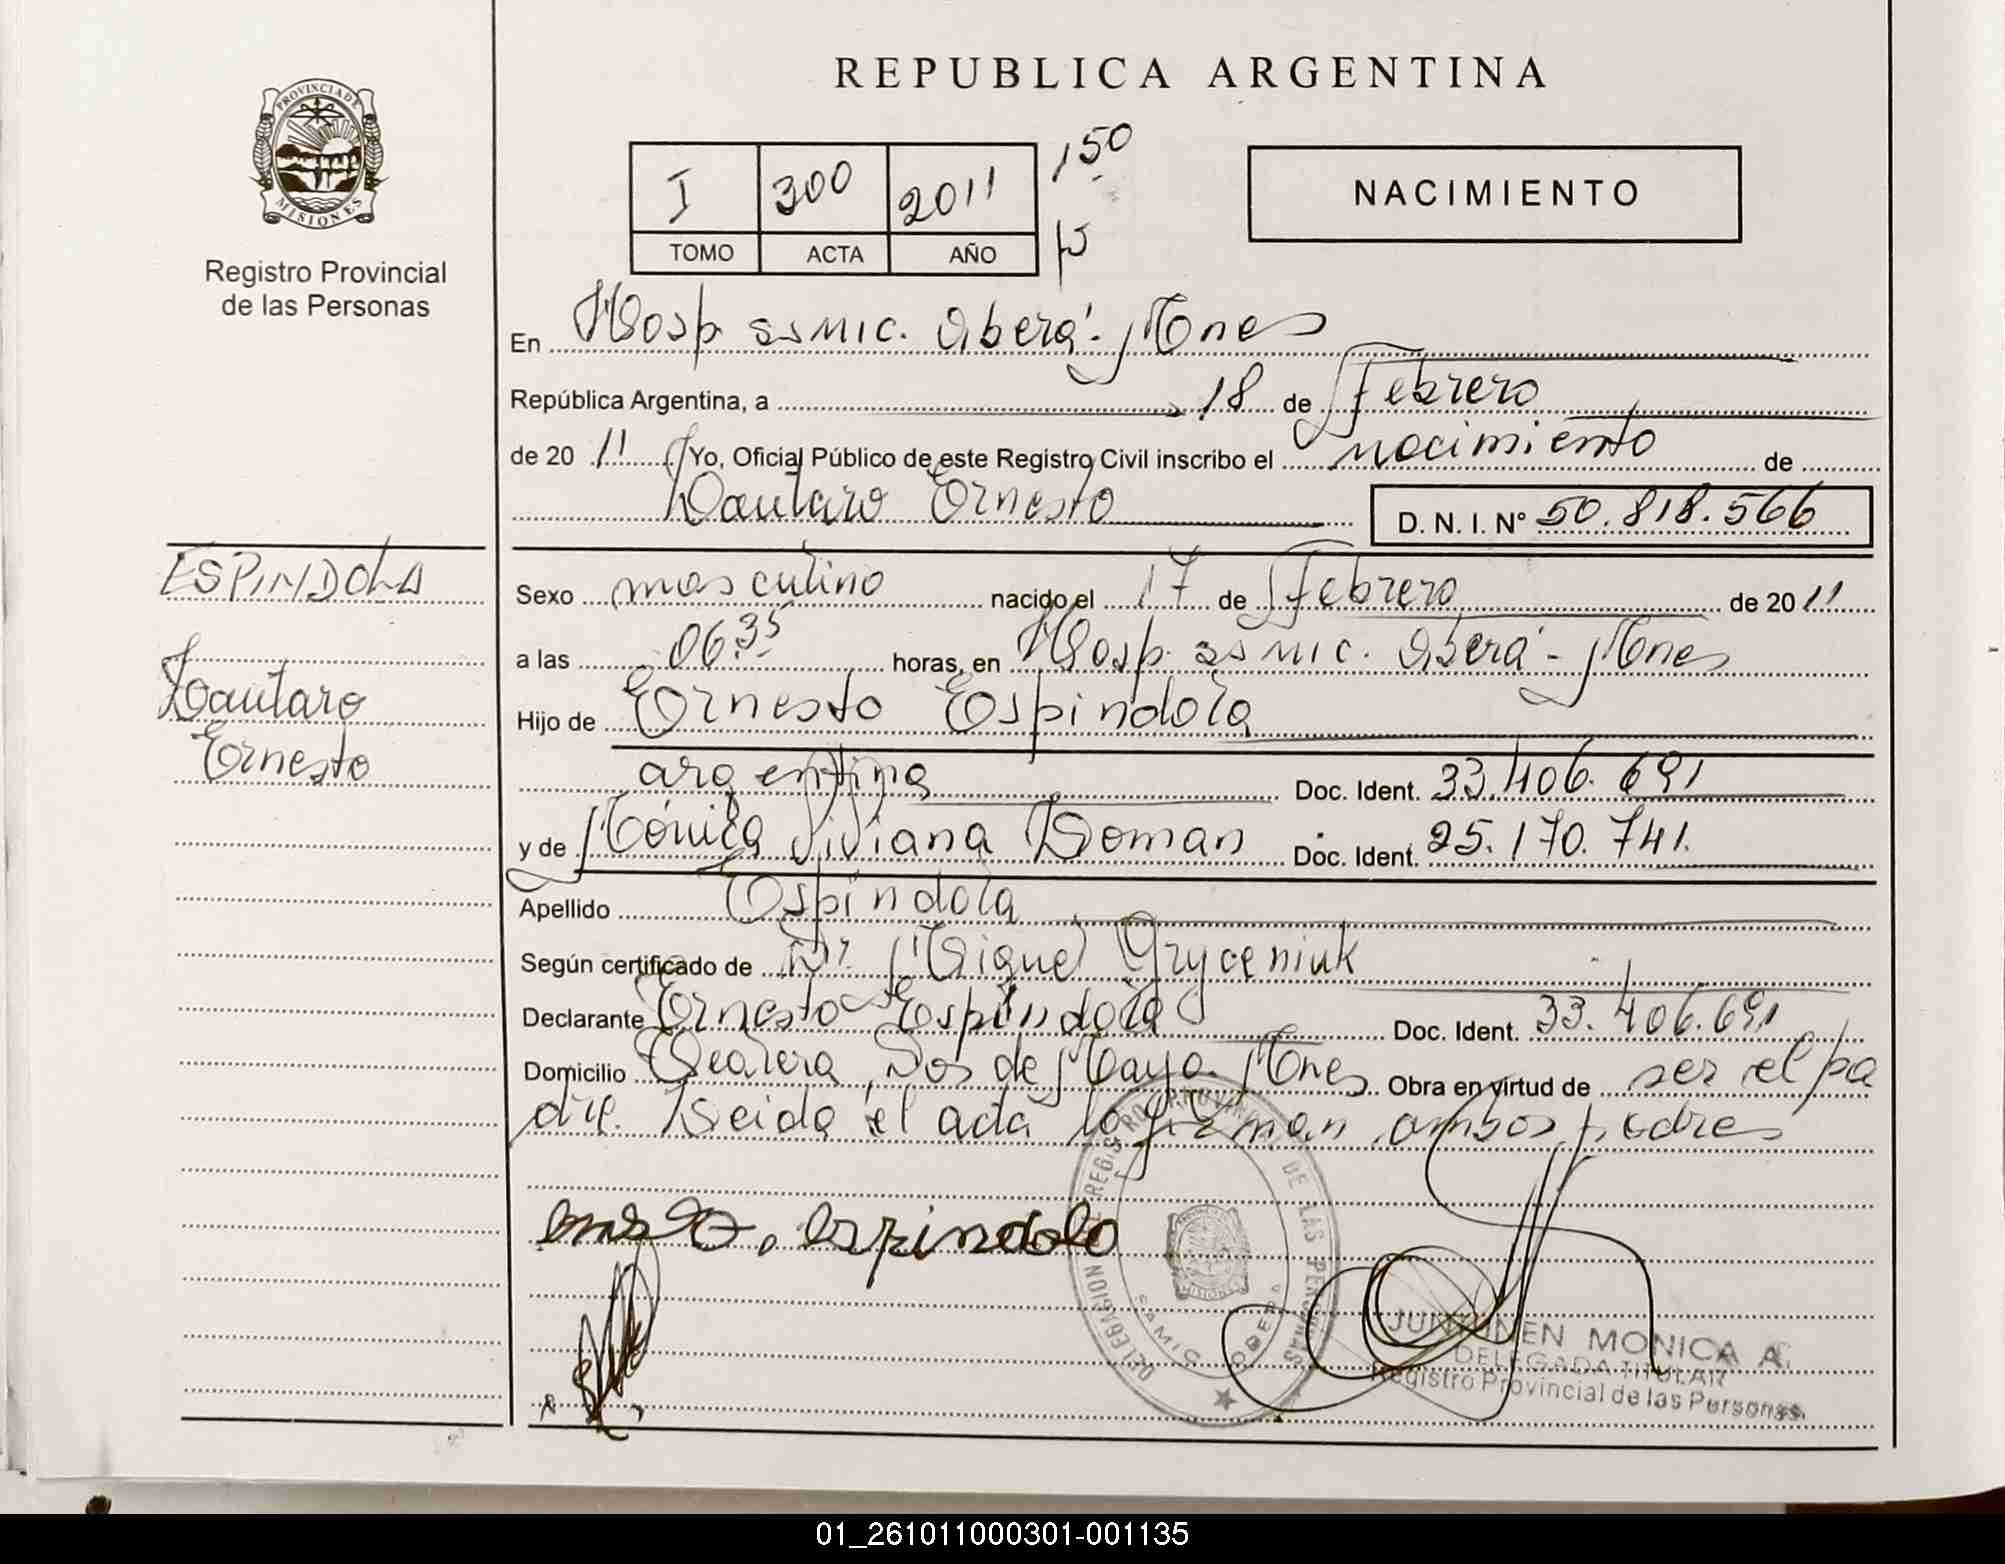 REPUBLICA ARGENTINA
PROVINCIA DE
MISIONES
Registro Provincial
de las Personas
I 300 2011 150
TOMO ACTA AÑO
NACIMIENTO
En Hosp ssmic. Oberá - Mnes
República Argentina, a 18 de Febrero
de 20 11 Yo, Oficial Público de este Registro Civil inscribo el nacimiento de
Lautaro Ernesto D. N. I. N° 50.818.566
ESPINDOLA
Lautaro
Ernesto
Sexo masculino nacido el 17 de Febrero de 20 11
a las 06.35 horas, en Hosp. ssmic. Oberá - Mnes
Hijo de Ernesto Espindola
argentina Doc. Ident. 33.406.691
y de Mónica Viviana Loman Doc. Ident. 25.170.741.
Apellido Espindola
Según certificado de Dr. Miguel Gryceniuk
Declarante Ernesto Espindola Doc. Ident. 33.406.691
Domicilio Dos de Mayo. Mnes Obra en virtud de ser el pa
dre. Leida el acta la firman ambos padres
espindola
DELEGACION REGISTRO PROVINCIAL DE LAS PERSONAS
MISIONES
SAMIC OBERA
MONICA A.
DELEGADA TITULAR
Registro Provincial de las Personas
01_261011000301-001135